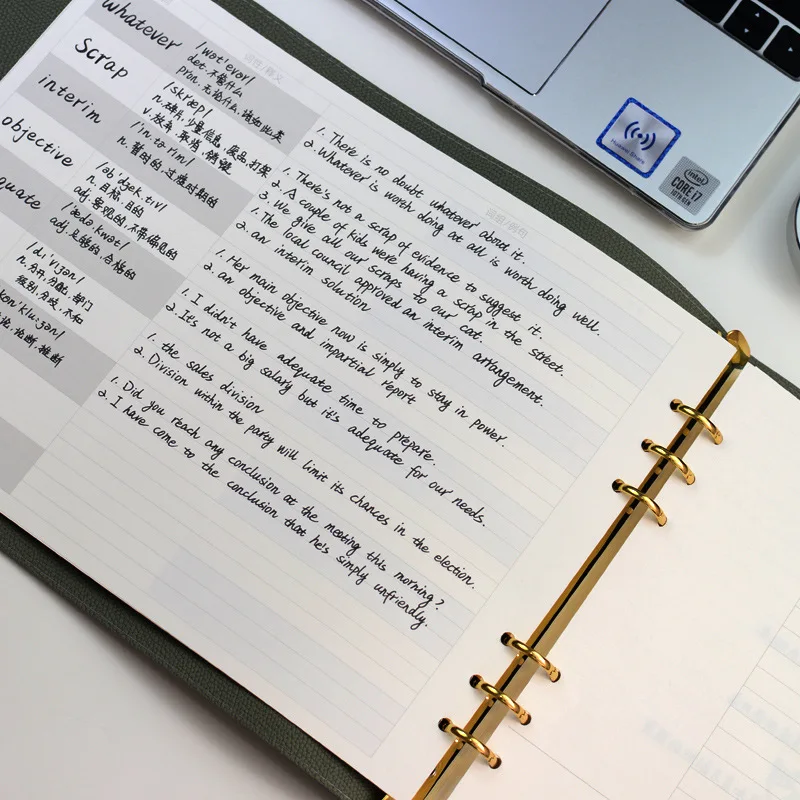 whatever
/wɒt'evər/
det. 不管什么
pron. 无论什么, 诸如此类
Scrap
/skræp/
n. 碎片, 少量信息, 废品, 打架
v. 放弃, 取消, 销毁
interim
/'ɪn.tə.rɪm/
n. 暂时的, 过渡时期的
objective
/əb'dʒek.tɪv/
n. 目标, 目的
adj. 客观的, 不带偏见的
quate
/'ædə.kwət/
adj. 足够的, 合格的
/dɪ'vɪʒən/
n. 分开, 分配, 部门
级别, 分歧, 不和
kən'kluːʒən/
论, 推断
词性/释义
词组/例句
1. There is no doubt whatever about it.
2. Whatever is worth doing at all is worth doing well.
1. There's not a scrap of evidence to suggest it.
2. A couple of kids were having a scrap in the street.
3. We give all our scraps to our cat.
1. The local council approved an interim arrangement.
2. an interim solution
1. Her main objective now is simply to stay in power.
2. an objective and impartial report
1. I didn't have adequate time to prepare.
2. It's not a big salary but it's adequate for our needs.
1. the sales division
2. Division within the party will limit its chances in the election.
1. Did you reach any conclusion at the meeting this morning?
2. I have come to the conclusion that he's simply unfriendly.
Huawei Share
intel
CORE i7
10TH GEN